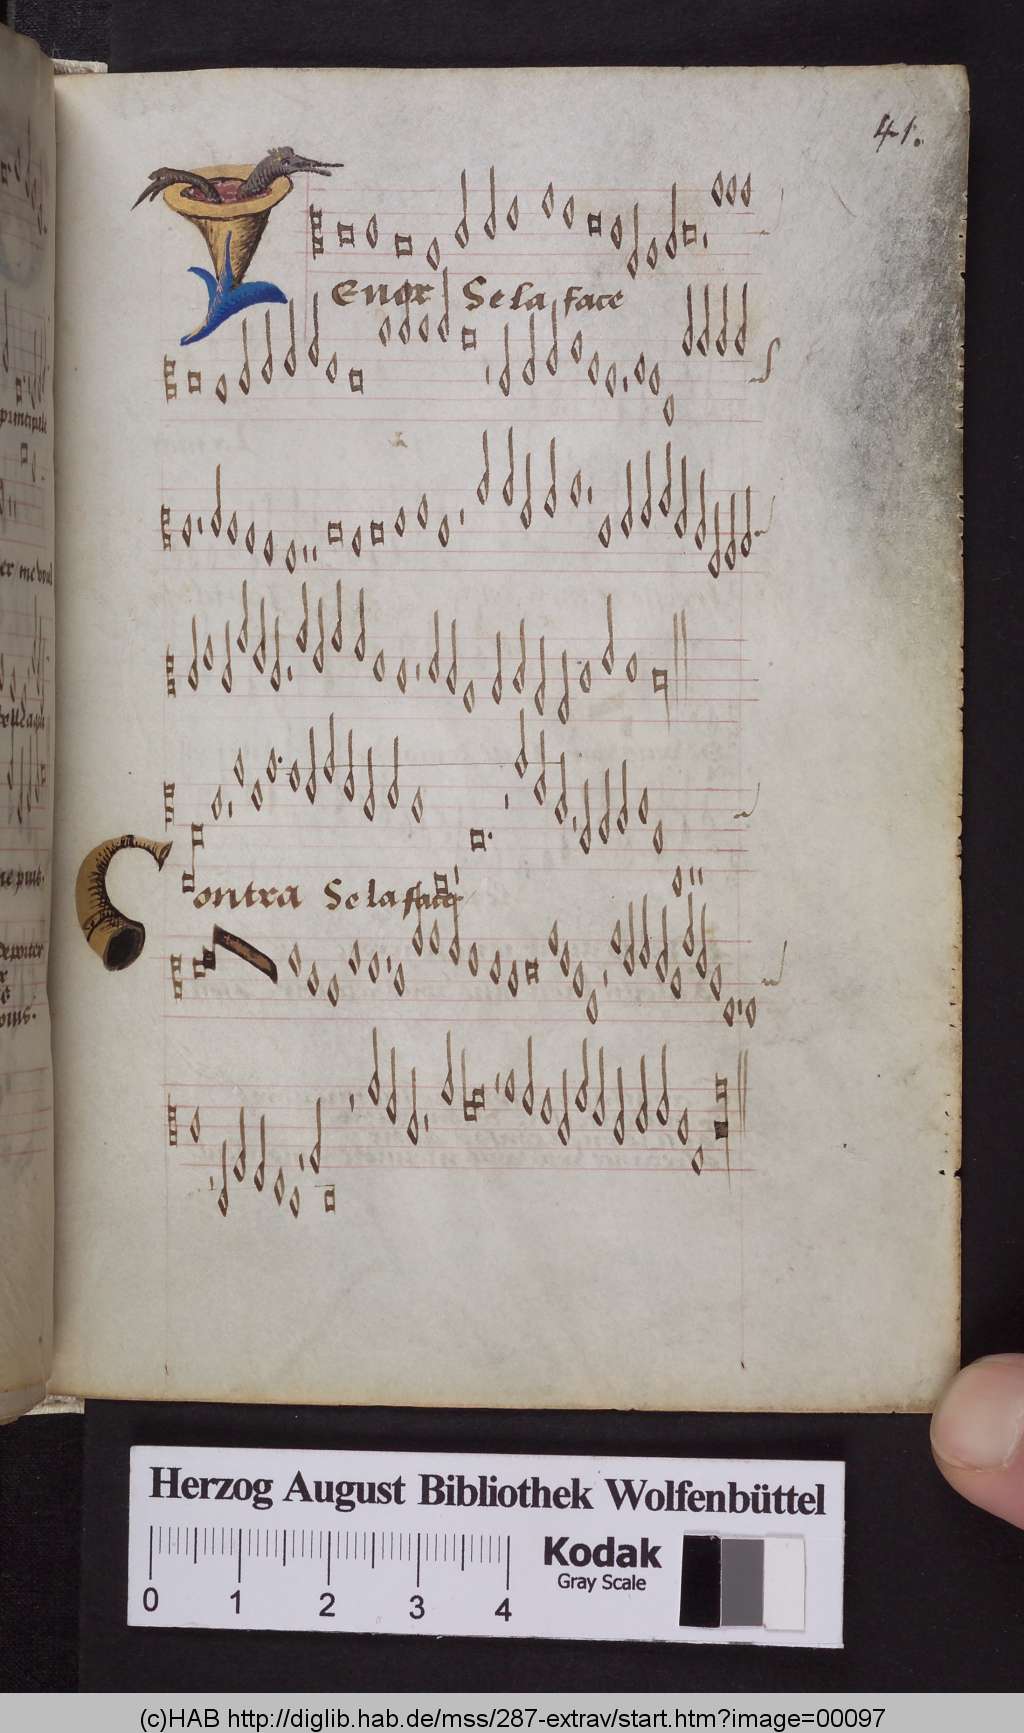 41.
enor Se la face
principale
ontra Se la face
Herzog August Bibliothek Wolfenbüttel
Kodak
Gray Scale
0 1 2 3 4
(c)HAB http://diglib.hab.de/mss/287-extrav/start.htm?image=00097